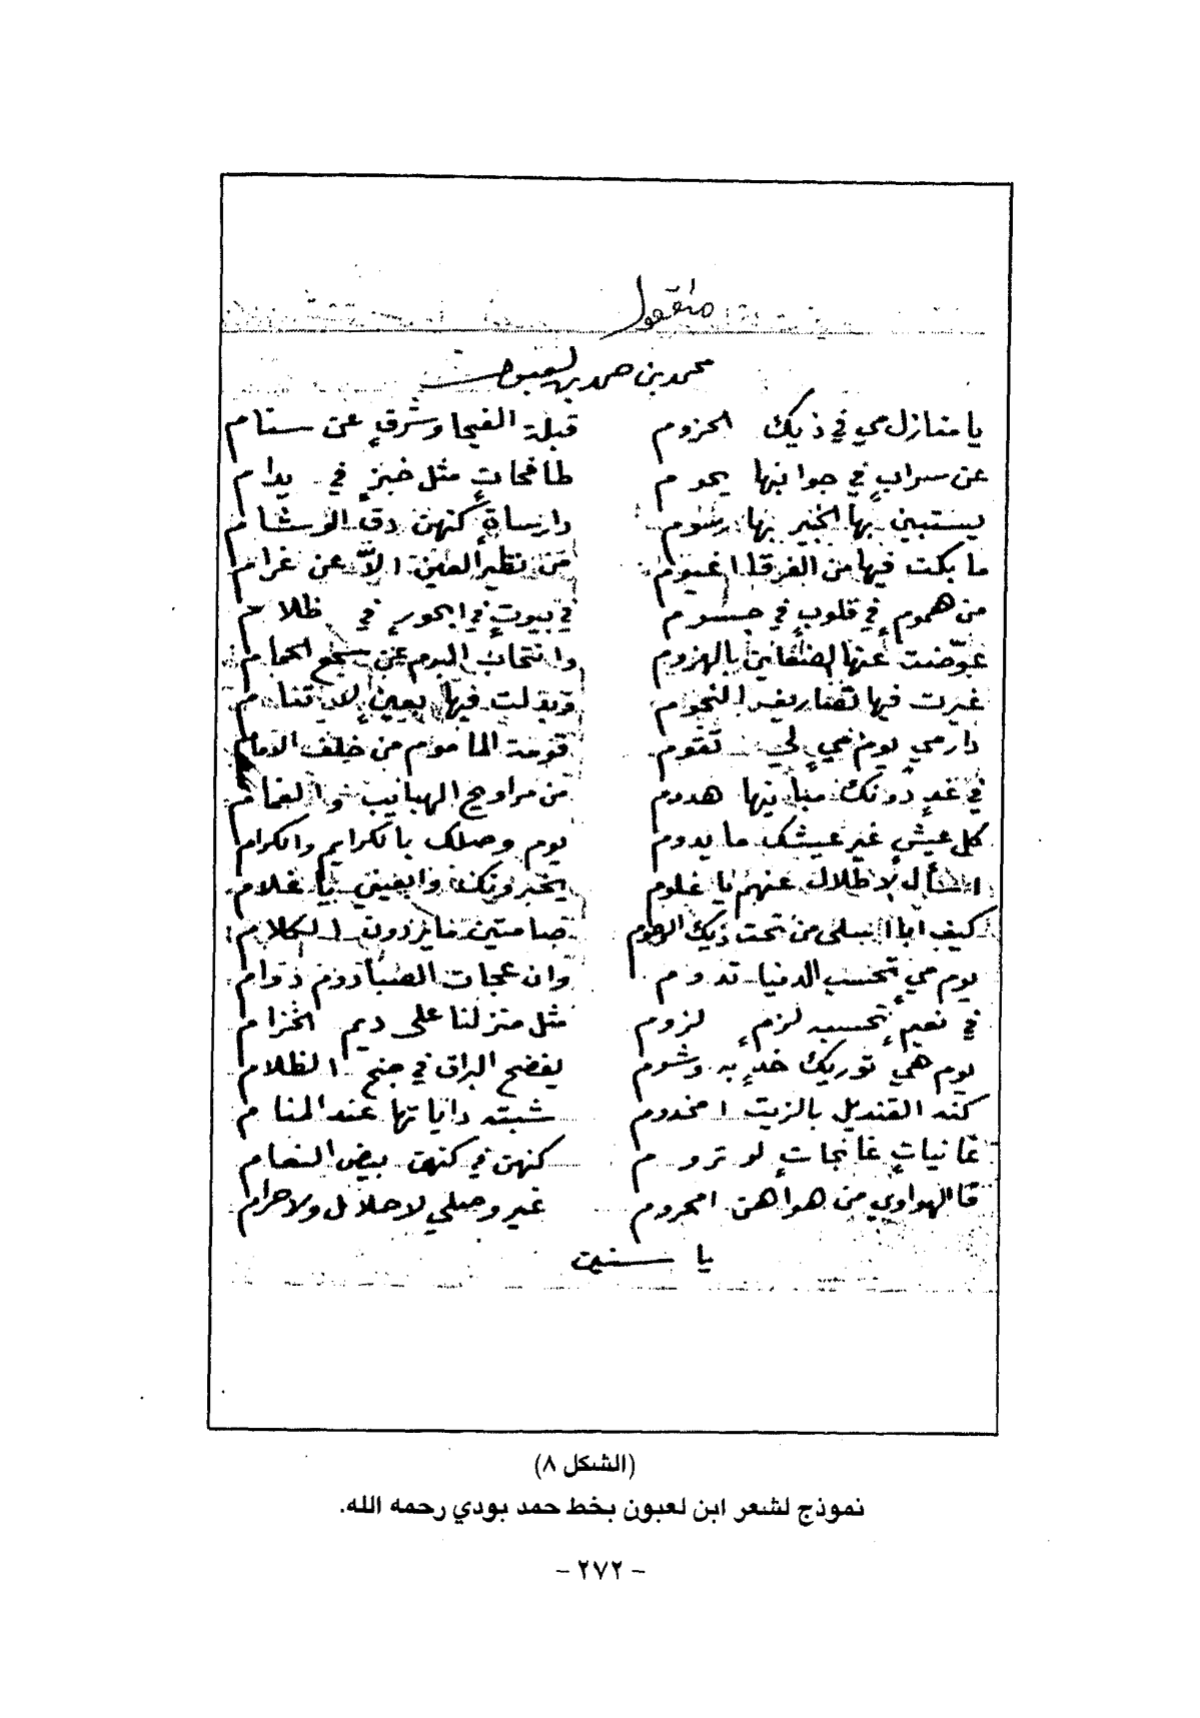 منقول
محمد بن حمد بن لعبون
يا منازل مي في ذيك الحزوم قبلة الفيحا وشرقٍ عن سنام
عن سرابٍ في جوانبها يحوم طافحاتٍ مثل خبزٍ في يدام
يستبين بها الخبير بها رسوم دارساةٍ كنهن دق الوشام
ما بكت فيها من الفرقا غيوم من نظير العين الاّ عن غرام
من همومٍ في قلوبٍ في جسوم في بيوتٍ في بحورٍ في ظلام
عوّضت عنها بالهزوم وانتحاب البوم عن سجع الحمام
غيرت فيها تصاريف النجوم وبدلت فيها بعينٍ لا تنام
دار مي يوم مي لي تقوم قومة الماموم من خلف الامام
في غدٍ دونك مبانيها هدوم من مراويح الهبايب والغمام
كل عيشٍ غير عيشك ما يدوم يوم وصلك بالكرايم والكرام
اسأل الاطلال عنهم يا غلوم يخبرونك وانعيني يا غلام
كيف ابا اسلى من تحت ذيك الرجوم صامتين ما يردون الكلام
يوم مي تحسب الدنيا تدوم وان عجات الصبا دوم دوام
في نعيمٍ تحسبه لزمٍ لزوم مثل منزلنا على ديم الخزام
يوم هي توريك خدٍ به وشوم يفضح البراق في جنح الظلام
كنه القنديل بالزيت امخدوم شبته داياتها عند المنام
غانياتٍ غانجاتٍ لو تروم كنهن في كنهن بيض النعام
قال هواوي من هواهن امحروم غير وصلي لا حلال ولا حرام
يا سنين
(الشكل ٨)
نموذج لشعر ابن لعبون بخط حمد بودي رحمه الله.
- ٢٧٢ -